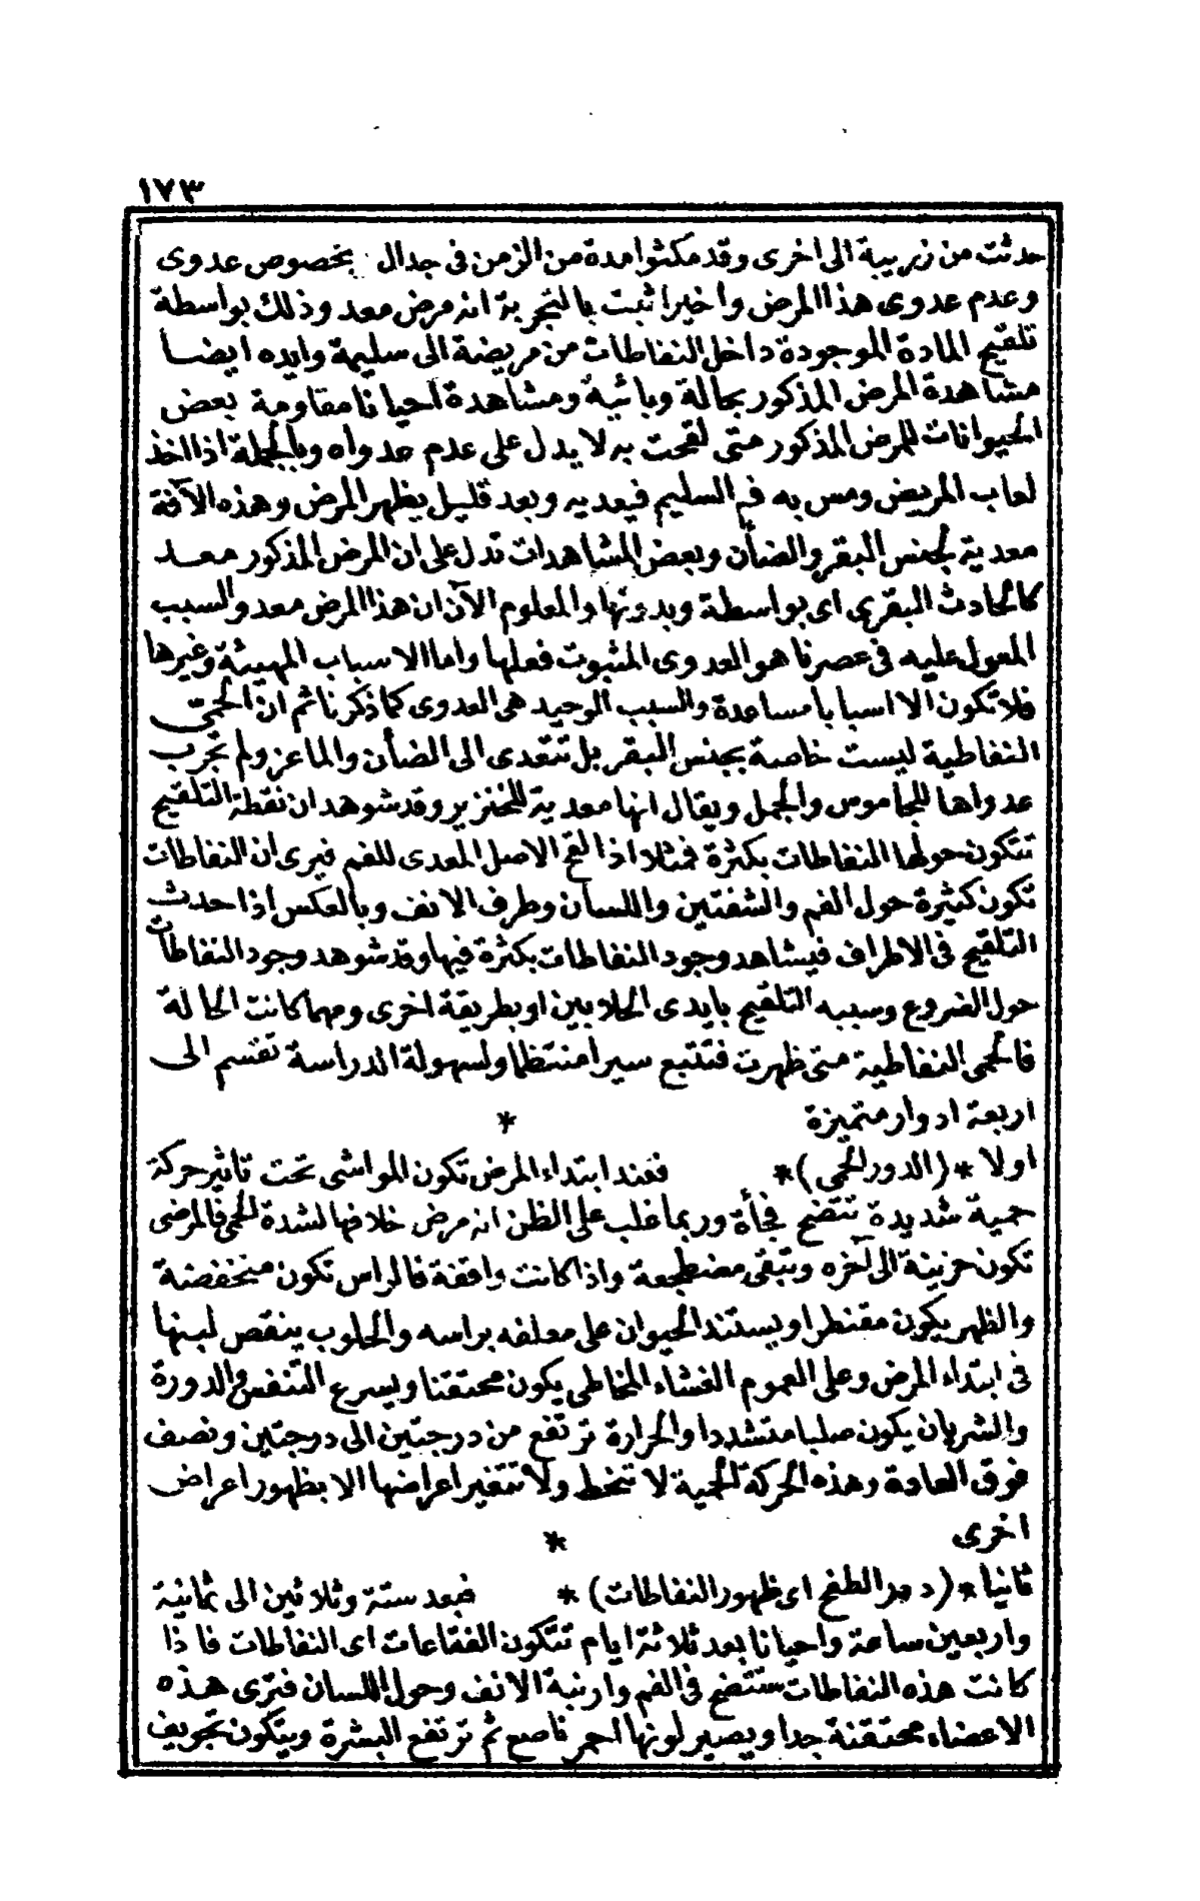 ١٧٣
حدثت من زريبة الى اخرى وقد مكثوا مدة من الزمن فى جدال بخصوص عدوى
وعدم عدوى هذا المرض واخيرا ثبت بالتجربة انه مرض معد وذلك بواسطة
تلقيح المادة الموجودة داخل النفاطات من مريضة الى سليمة وايده ايضا
مشاهدة المرض المذكور بحالة وبائية ومشاهدة احيانا مقاومة بعض
الحيوانات للمرض المذكور متى لقحت به لا يدل على عدم عدواه وبالجملة اذا اخذ
لعاب المريض ومس به فم السليم فيعديه وبعد قليل يظهر المرض وهذه الآفة
معدية لجنس البقر والضأن وبعض المشاهدات تدل على ان المرض المذكور معد
كالحادث البقرى اى بواسطة وبدونها والمعلوم الآن ان هذا المرض معد والسبب
المعول عليه فى عصرنا هو العدوى المثبوت فعلها واما الاسباب المهيئة وغيرها
فلا تكون الا اسبابا مساعدة والسبب الوحيد هى العدوى كما ذكرنا ثم ان الحمى
النفاطية ليست خاصة بجنس البقر بل تتعدى الى الضأن والماعز ولم تجرب
عدواها للجاموس والجمل ويقال انها معدية للخنزير وقد شوهد ان نقطة التلقيح
تتكون حولها النفاطات بكثرة فمثلا اذا لقح الاصل المعدى للفم فيرى ان النفاطات
تكون كثيرة حول الفم والشفتين واللسان وطرف الانف وبالعكس اذا حدث
التلقيح فى الاطراف فيشاهد وجود النفاطات بكثرة فيها وقد شوهد وجود النفاطات
حول الضروع وسببه التلقيح بايدى الحلابين او بطريقة اخرى ومهما كانت الحالة
فالحمى النفاطية متى ظهرت فتتبع سيرا منتظما ولسهولة الدراسة تقسم الى
اربعة ادوار متميزة *
اولا * (الدور الحمى) * فعند ابتداء المرض تكون المواشى تحت تاثير حركة
حمية شديدة تتضح فجأة وربما غلب على الظن انه مرض خلافها لشدة الحمى فالمرضى
تكون حزينة الى آخره وتبقى مضطجعة واذا كانت واقفة فالراس تكون منخفضة
والظهر يكون مقنطرا ويستند الحيوان على معلفه براسه والحلوب ينقص لبنها
فى ابتداء المرض وعلى العموم الغشاء المخاطى يكون محتقنا ويسرع التنفس والدورة
والشريان يكون صلبا متشددا والحرارة ترتفع من درجتين الى درجتين ونصف
فوق العادة وهذه الحركة الحمية لا تنحط ولا تتغير اعراضها الا بظهور اعراض
اخرى *
ثانيا * (دور الطفح اى ظهور النفاطات) * فبعد ستة وثلاثين الى ثمانية
واربعين ساعة واحيانا بعد ثلاثة ايام تتكون الفقاعات اى النفاطات فاذا
كانت هذه النفاطات ستتضح فى الفم وارنبة الانف وحول اللسان فترى هذه
الاعضاء محتقنة جدا ويصير لونها احمر ناصع ثم ترتفع البشرة ويتكون تجويف